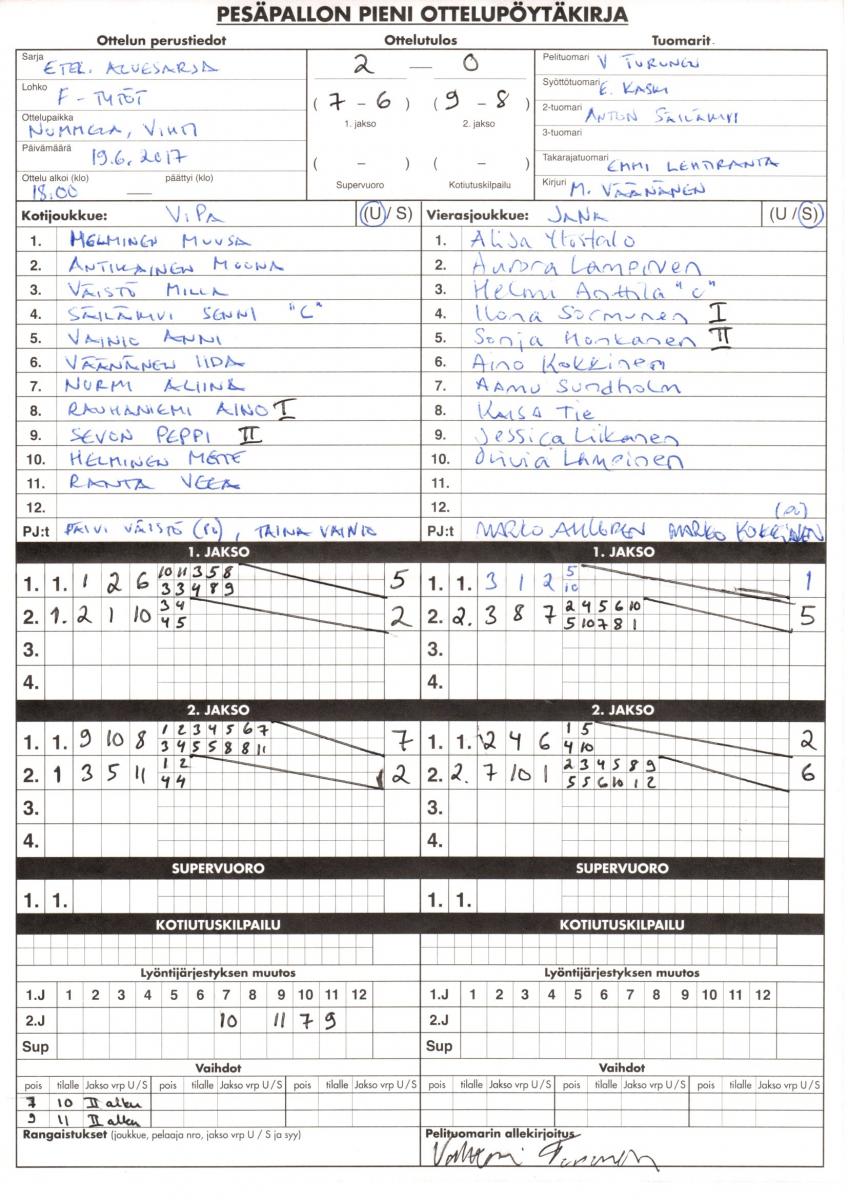 PESÄPALLON PIENI OTTELUPÖYTÄKIRJA
Ottelun perustiedot Ottelutulos Tuomarit
Sarja ETEL. ALUESARJA
Lohko F-TYTÖT
Ottelupaikka NUMMELA, VIHTI
Päivämäärä 19.6.2017
Ottelu alkoi (klo) päättyi (klo)
18.00 —
2 — 0
(7 - 6) (9 - 8)
1. jakso 2. jakso
( - ) ( - )
Supervuoro Kotiutuskilpailu
Pelituomari V TURUNEN
Syöttötuomari E. KASKI
2-tuomari ANTON SÄILÄKIVI
3-tuomari
Takarajatuomari EMMI LEHTIRANTA
Kirjuri M. VÄÄNÄNEN
Kotijoukkue: ViPa (U/S)
1. HELMINEN MUUSA
2. ANTIKAINEN MOONA
3. VÄISTÖ MILLA
4. SÄILÄKIVI SENNI "C"
5. VAINIO ANNI
6. VÄÄNÄNEN IIDA
7. NURMI ALIINA
8. RAUHANIEMI AINO I
9. SEVON PEPPI II
10. HELMINEN METTE
11. RANTA VEERA
12.
PJ:t PÄIVI VÄISTÖ (PJ), TAINA VAINIO
Vierasjoukkue: JANA (U/S)
1. Alisa Ylöstalo
2. Aurora Lampinen
3. Helmi Anttila "C"
4. Ilona Sormunen I
5. Sonja Honkanen II
6. Aino Kokkinen
7. Aamu Sundholm
8. Kaisa Tie
9. Jessica Liikanen
10. Olivia Lampinen
11.
12. (PJ)
PJ:t MARKO AHLGREN MARKO KOKKINEN
1. JAKSO
1. 1. 1 2 6 10 11 3 5 8 5
3 3 4 8 9
2. 1. 2 1 10 3 4 2
4 5
3.
4.
1. JAKSO
1. 1. 3 1 2 5 1
10
2. 2. 3 8 7 2 4 5 6 10 5
5 10 7 8 1
3.
4.
2. JAKSO
1. 1. 9 10 8 1 2 3 4 5 6 7 7
3 4 5 5 8 8 11
2. 1 3 5 11 1 2 2
4 4
3.
4.
2. JAKSO
1. 1. 2 4 6 1 5 2
4 10
2. 2. 7 10 1 2 3 4 5 8 9 6
5 5 6 10 1 2
3.
4.
SUPERVUORO SUPERVUORO
1. 1. 1. 1.
KOTIUTUSKILPAILU KOTIUTUSKILPAILU
Lyöntijärjestyksen muutos Lyöntijärjestyksen muutos
1.J 1 2 3 4 5 6 7 8 9 10 11 12 1.J 1 2 3 4 5 6 7 8 9 10 11 12
2.J 10 11 7 9 2.J
Sup Sup
Vaihdot Vaihdot
pois tilalle Jakso vrp U/S pois tilalle Jakso vrp U/S pois tilalle Jakso vrp U/S pois tilalle Jakso vrp U/S pois tilalle Jakso vrp U/S pois tilalle Jakso vrp U/S
7 10 II alku
9 11 II alku
Rangaistukset (joukkue, pelaaja nro, jakso vrp U / S ja syy) Pelituomarin allekirjoitus